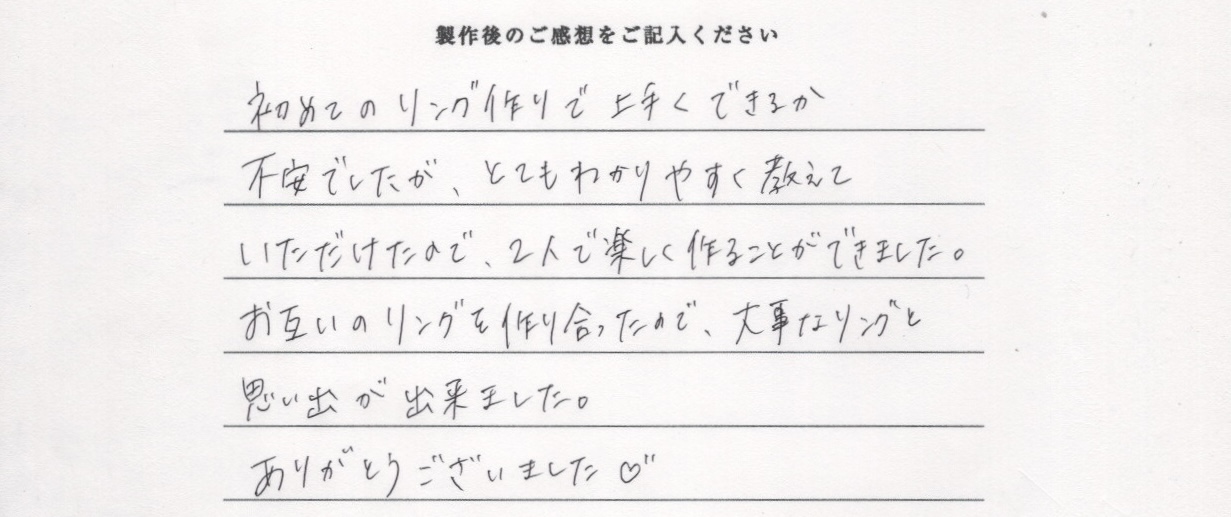 製作後のご感想をご記入ください
初めてのリング作りで上手くできるか
不安でしたが、とてもわかりやすく教えて
いただけたので、2人で楽しく作ることができました。
お互いのリングを作り合ったので、大事なリングと
思い出が出来ました。
ありがとうございました♡"